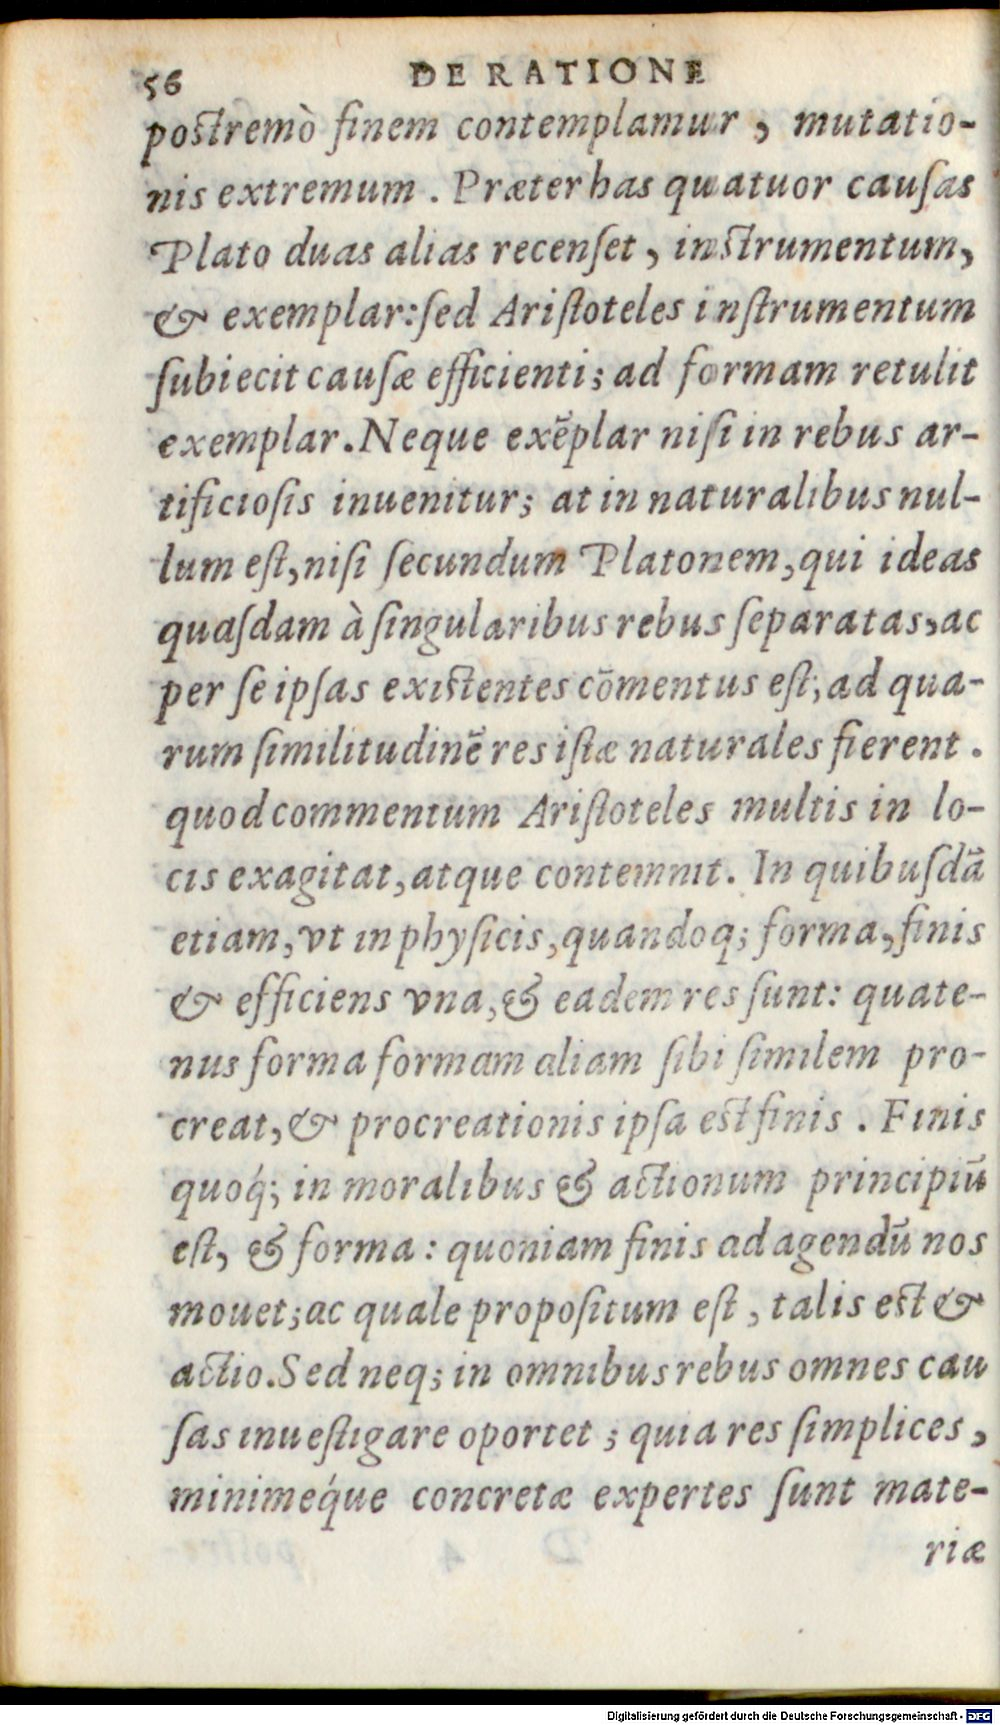 56 DE RATIONE
postremò finem contemplamur, mutatio-
nis extremum. Præter has quatuor cauſas
Plato duas alias recenſet, instrumentum,
& exemplar: ſed Ariſtoteles inſtrumentum
ſubiecit cauſæ efficienti; ad formam retulit
exemplar. Neque exẽplar niſi in rebus ar-
tificioſis inuenitur; at in naturalibus nul-
lum eſt, niſi ſecundum Platonem, qui ideas
quaſdam à ſingularibus rebus ſeparatas, ac
per ſe ipſas existentes cõmentus eſt; ad qua-
rum ſimilitudinẽ res iſtæ naturales fierent.
quod commentum Ariſtoteles multis in lo-
cis exagitat, atque contemnit. In quibuſdã
etiam, vt in phyſicis, quandoq; forma, finis
& efficiens vna, & eadem res ſunt: quate-
nus forma formam aliam ſibi ſimilem pro-
creat, & procreationis ipſa est finis. Finis
quoq́; in moralibus & actionum principiũ
eſt, & forma: quoniam finis ad agendũ nos
mouet; ac quale propoſitum eſt, talis est &
actio. Sed neq; in omnibus rebus omnes cau
ſas inueſtigare oportet; quia res ſimplices,
minimeq́ue concretæ expertes ſunt mate-
riæ
Digitalisierung gefördert durch die Deutsche Forschungsgemeinschaft - DFG